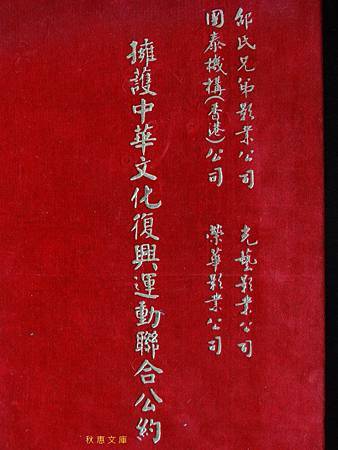 邵氏兄弟影業公司
光藝影業公司
國泰機構(香港)公司
榮華影業公司
擁護中華文化復興運動聯合公約
秋惠文庫